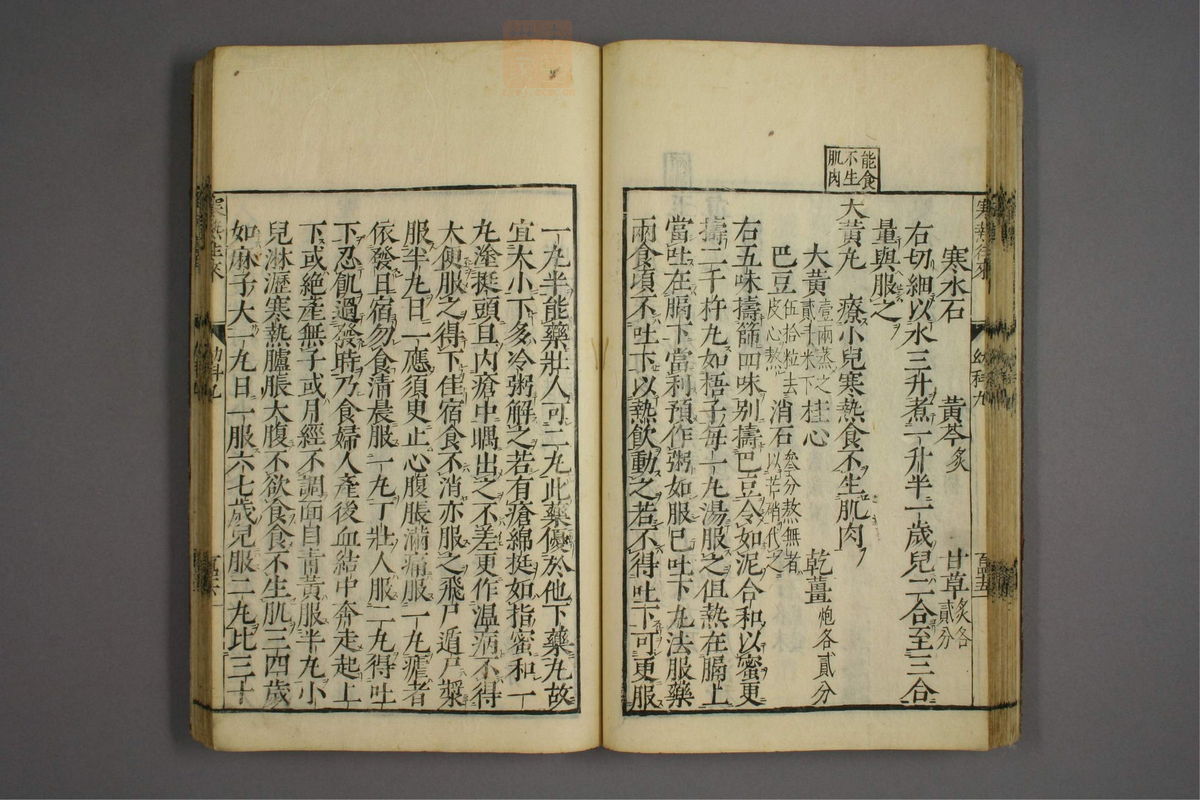 能食
不生
肌肉
寒水石 黄芩炙 甘草炙各貳分
右切細以水三升煮一升半一歲兒二合至三合
量與服之
大黄丸 療小兒寒熱食不生肌肉
大黄壹兩蒸之貳升米下 桂心 乾薑炮各貳分
巴豆伍拾粒去皮心熬 消石叄分熬無者以芒硝代之
右五味擣篩四味别擣巴豆令如泥合和以蜜更
擣二千杵丸如梧子每一丸湯服之但熱在膈上
當吐在膈下當利預作粥如服已吐下丸法服藥
兩食頃不吐下以熱飲動之若不得吐下可更服
一丸半能藥壯人可二丸此藥優於他下藥丸故
宜大小下多冷粥解之若有瘡綿挺如指蜜和一
丸塗挺頭且内瘡中嚈出之不差更作溫病不得
大便服之得下佳宿食不消亦服之飛尸遁尸漿
服半丸日一應須更止心腹脹滿痛服一丸瘧者
依發日宿勿食清晨服一丸丁壯人服二丸得吐
下忍飢過發時乃食婦人産後血結中奔走起上
下或絶産無子或月經不調面目青黄服半丸小
兒淋瀝寒熱臚脹大腹不欲食食不生肌三四歲
如麻子大一丸日一服六七歲兒服二丸比三十